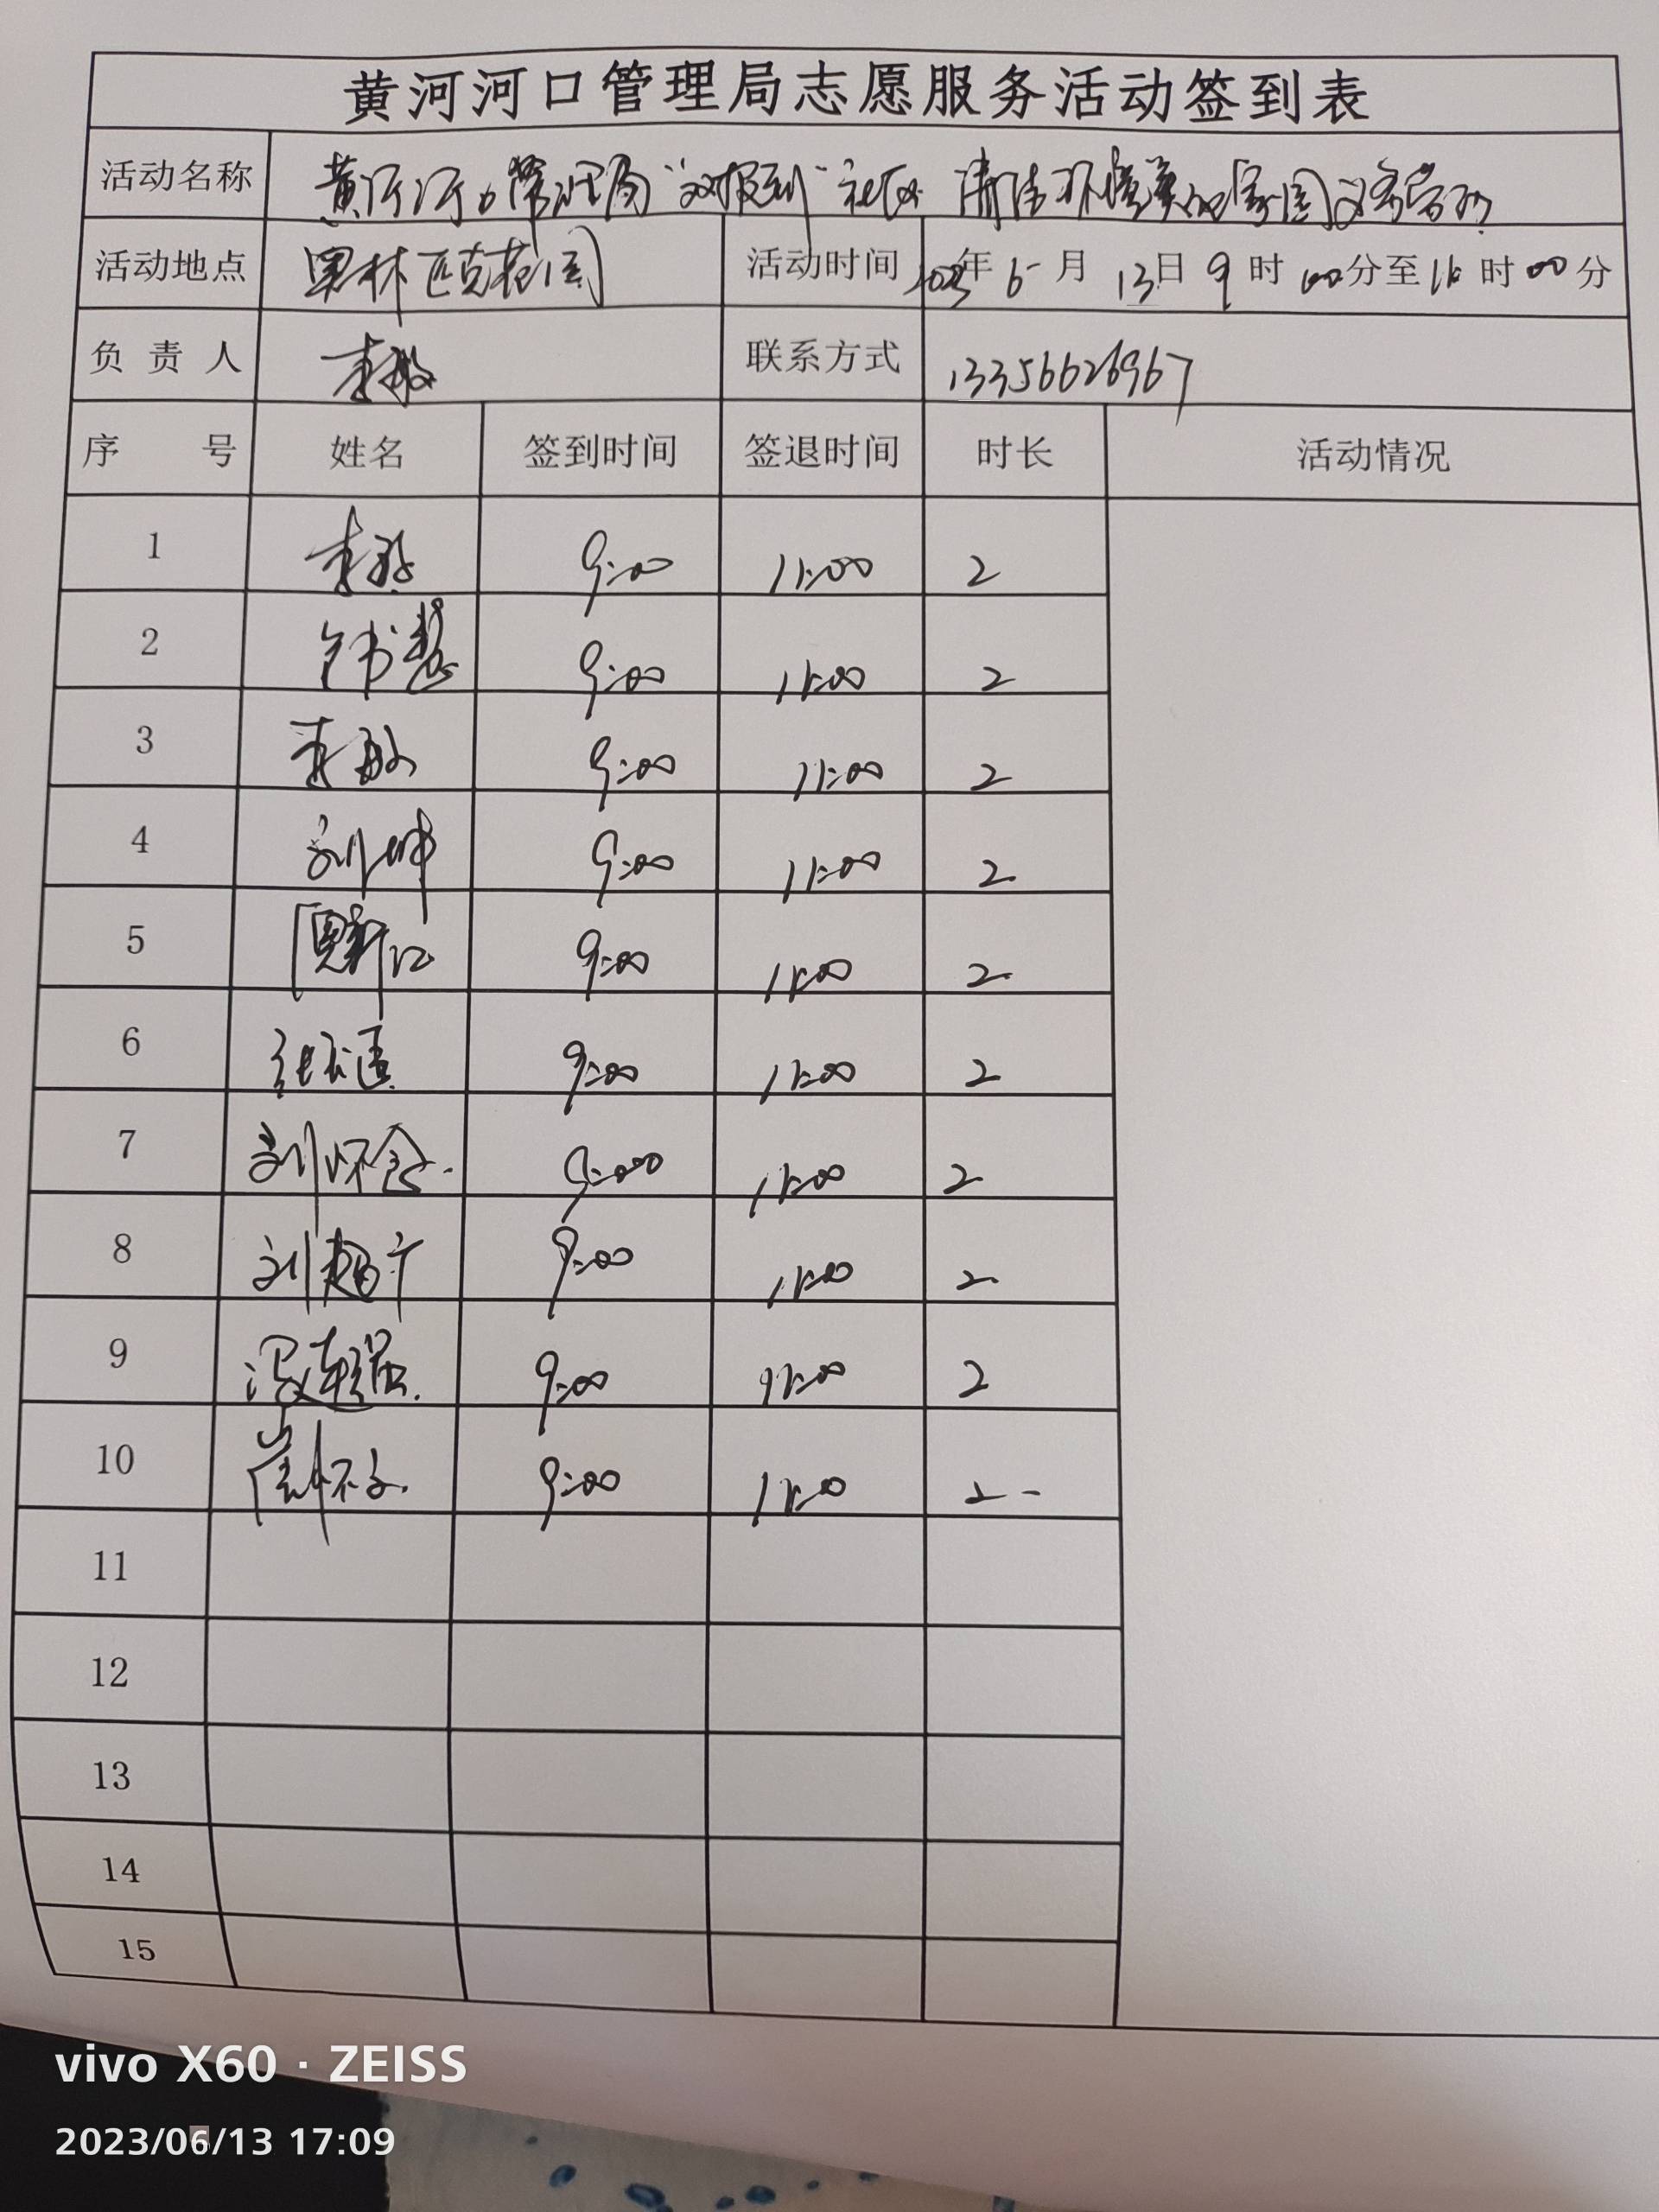 黄河河口管理局志愿服务活动签到表
活动名称 黄河河口管理局"双报到"社区 清洁环境美化家园义务劳动
活动地点 果林匹克花园 活动时间 2023年 6 月 13日 9 时 00分至 时 00分
负责人 李敏 联系方式 13356626967
序号 姓名 签到时间 签退时间 时长 活动情况
1 李敏 9:00 11:00 2
2 9:00 11:00 2
3 李敏 9:00 11:00 2
4 刘坤 9:00 11:00 2
5 9:00 11:00 2
6 9:00 11:00 2
7 刘怀 9:00 11:00 2
8 刘超 9:00 11:00 2
9 9:00 11:00 2
10 崔怀 9:00 11:00 2
11
12
13
14
15
vivo X60 · ZEISS
2023/06/13 17:09